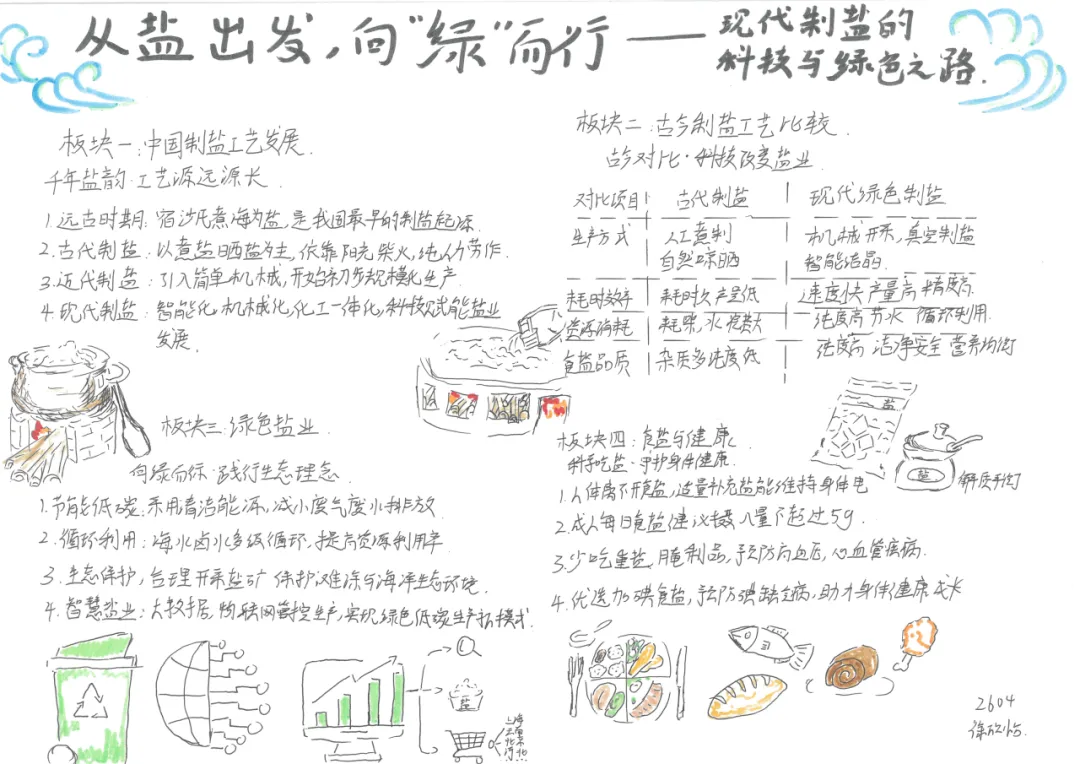 从盐出发,向“绿”而行——现代制盐的
科技与绿色之路.
板块一:中国制盐工艺发展.
千年盐韵·工艺源远源长.
1.远古时期:宿沙氏煮海为盐,是我国最早的制盐起源.
2.古代制盐:以煮盐晒盐为主,依靠阳光柴火,纯人力劳作.
3.近代制盐:引入简单机械,开始初步规模化生产
4.现代制盐:智能化,机械化,化工一体化,科技赋能盐业
发展.
板块二:古今制盐工艺比较.
古今对比·科技改变盐业.
对比项目 古代制盐 现代绿色制盐
生产方式 人工煮制 自然晾晒 机械开采,真空制盐 智能结晶.
耗时效率 耗时久产量低 速度快产量高 精度高
资源消耗 耗柴,水 节水 循环利用.
食盐品质 杂质多纯度低 纯度高 洁净安全 营养均衡
板块三:绿色盐业
向绿而行·践行生态理念
1.节能低碳:采用清洁能源,减小废气废水排放
2.循环利用:海水卤水多级循环,提高资源利用率
3.生态保护,合理开采盐矿 保护滩涂与海洋生态环境.
4.智慧盐业:大数据,物联网管控生产,实现绿色低碳生产新模式.
板块四:食盐与健康
科学吃盐·守护身体健康.
1.人体离不开食盐,适量补充盐能维持身体电
解质平衡
2.成人每日食盐建议摄入量不超过5g.
3.少吃重盐,腌制品,预防高血压,心血管疾病.
4.优选加碘食盐,预防碘缺乏病,助力身体健康成长
盐
盐
盐
上海
北京
河北
2604